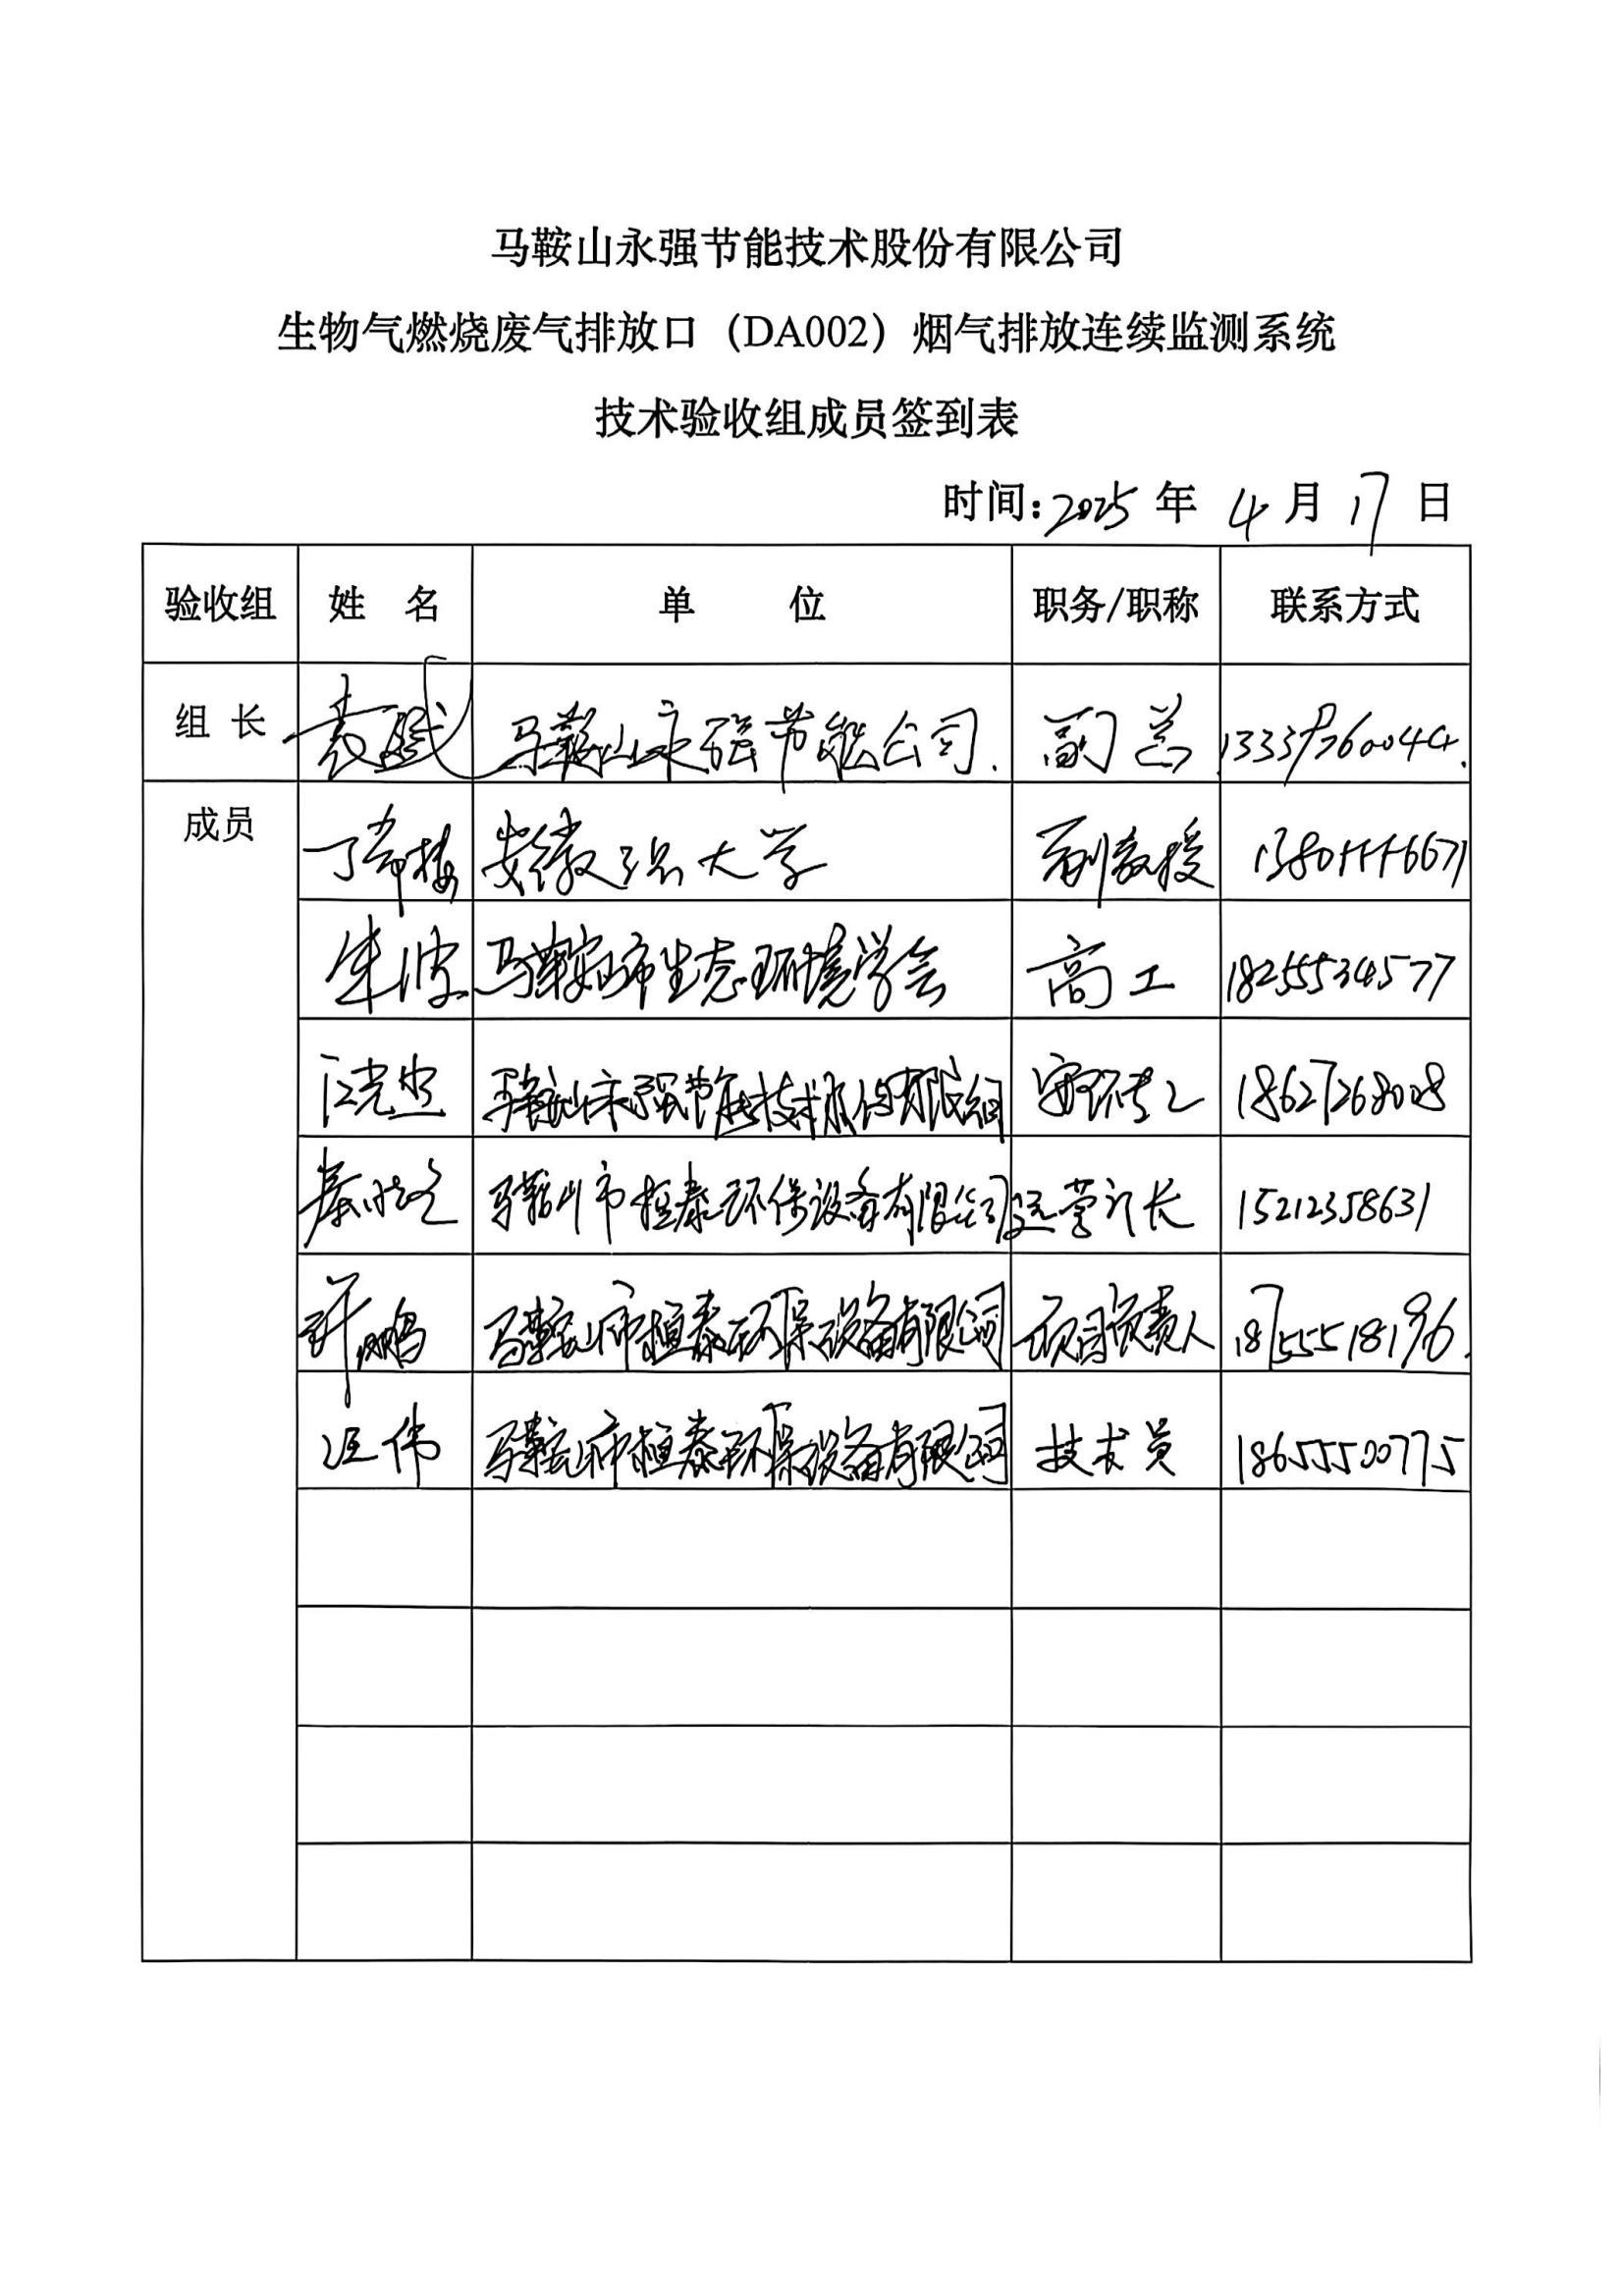 马鞍山永强节能技术股份有限公司
生物气燃烧废气排放口（DA002）烟气排放连续监测系统
技术验收组成员签到表
时间：2025 年 4 月 17 日
验收组 姓 名 单 位 职务/职称 联系方式
组 长 马鞍山永强节能公司. 副总
成员 丁希楼 安徽工业大学 副教授 13805556671
朱波 马鞍山市生态环境学会 高工 18255534577
马鞍山永强节能技术股份有限公司 安环专工 18627268008
秦 马鞍山市恒泰环保设备有限公司 运营部长 15212358631
许鹏 马鞍山市恒泰环保设备有限公司 项目负责人 18755518196.
汪伟 马鞍山市恒泰环保设备有限公司 技术员 18655500775